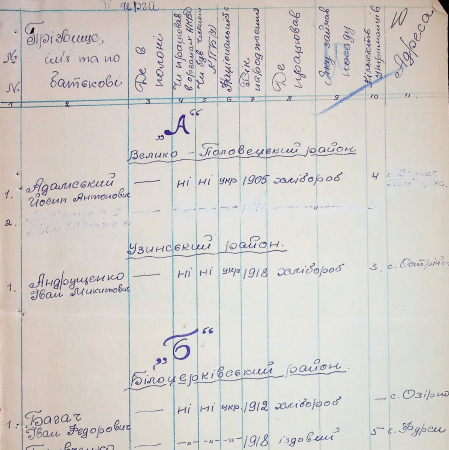 № Прізвище, ім'я та по батькові Де в полоні Чи працював в органах НКВС Чи був членом Національність Рік народження Де працював Яку займав посаду Кількість Адреса
1. 2 3 4 5 6 7 8 9 10 11
„А“
Велико-Половецький район
1. Адамський Йосип Антонович — ні ні укр 1905 хлібороб 4
2.
Узинський район.
1. Андрущенко Іван Микитович — ні ні укр 1918 хлібороб 3 с. Острій
„Б“
Білоцерківський район.
1. Багач Іван Федорович — ні ні укр. 1912 хлібороб — с. Озірн
— -„- -„- -„- 1918 їздовий 5 с. Фурси